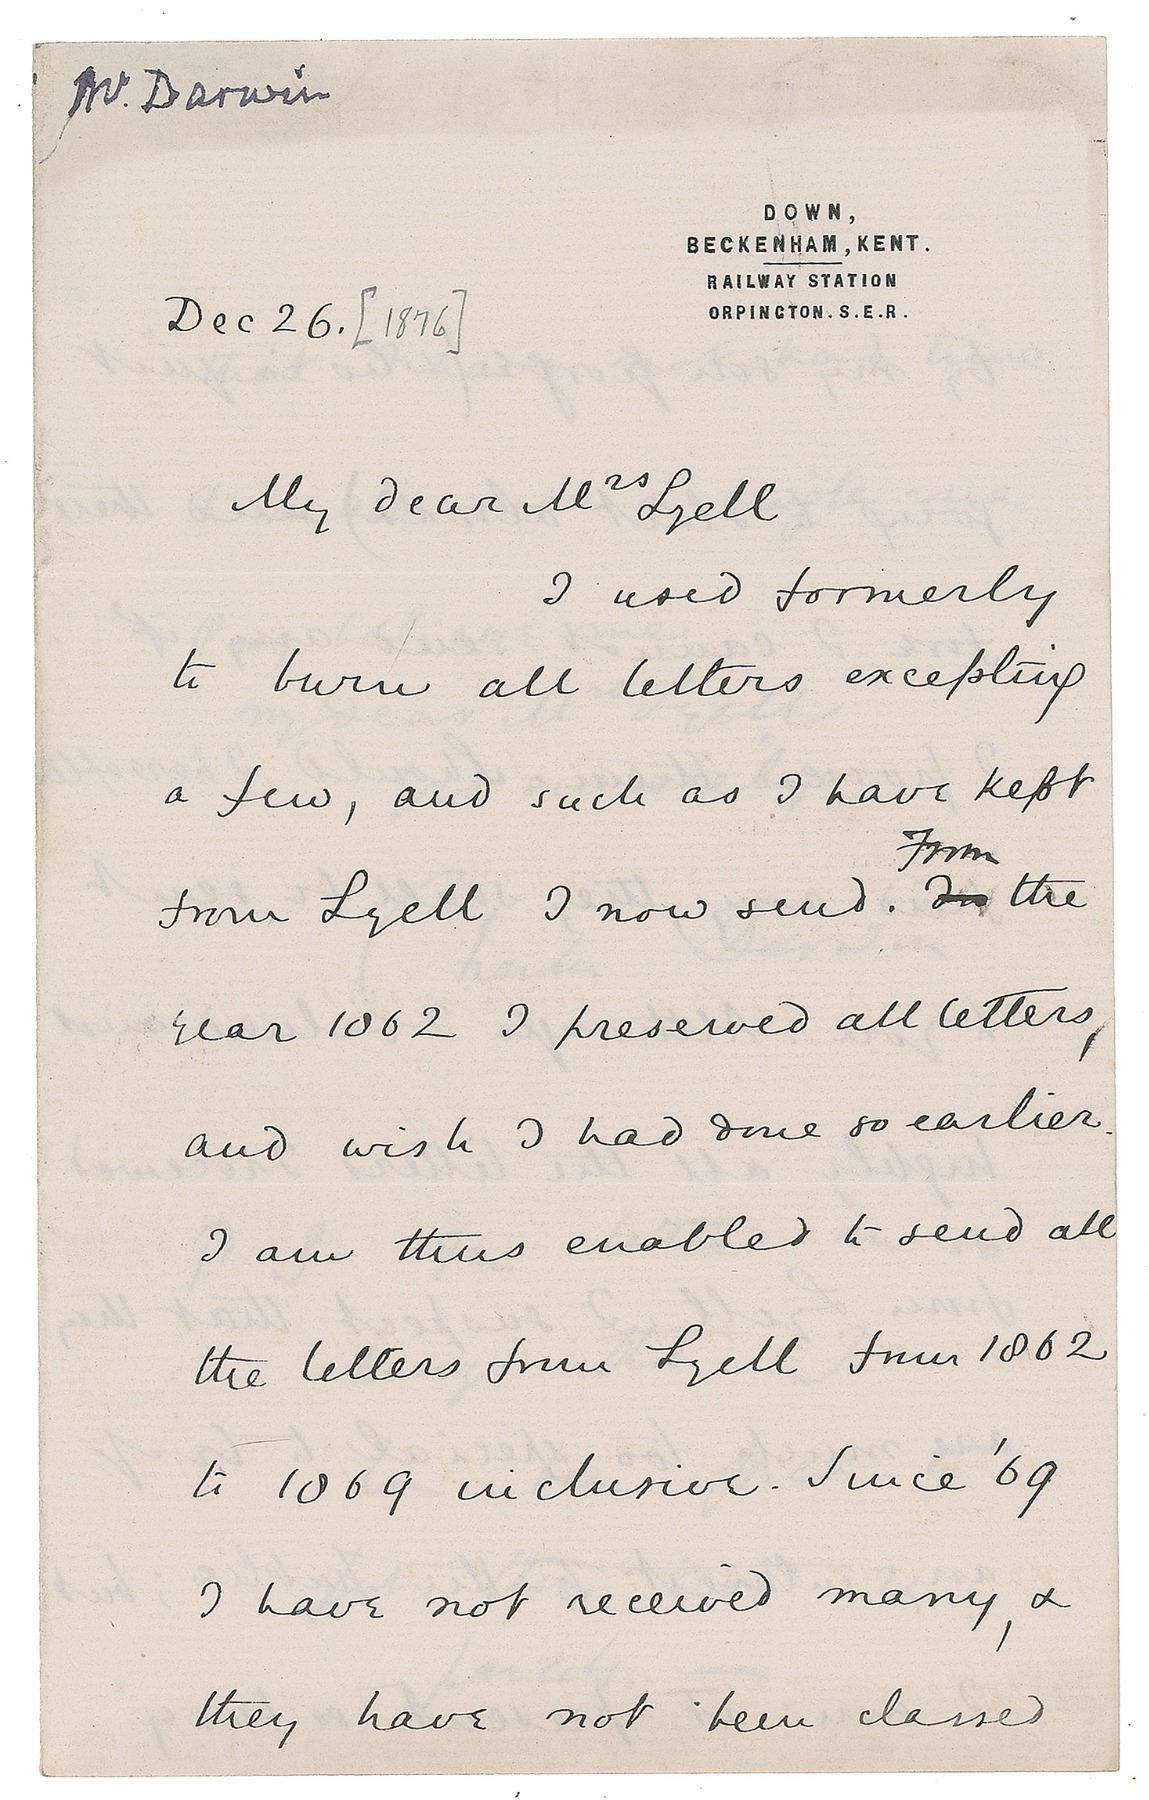 Mr. Darwin
DOWN,
BECKENHAM, KENT.
RAILWAY STATION
ORPINGTON. S.E.R.
Dec 26. [1876]
My dear Mrs Lyell
I used formerly
to burn all letters excepting
a few, and such as I have kept
From
from Lyell I now send. In the
year 1862 I preserved all letters,
and wish I had done so earlier.
I am thus enabled to send all
the letters from Lyell from 1862
to 1869 inclusive. Since '69
I have not received many, &
they have not been classed